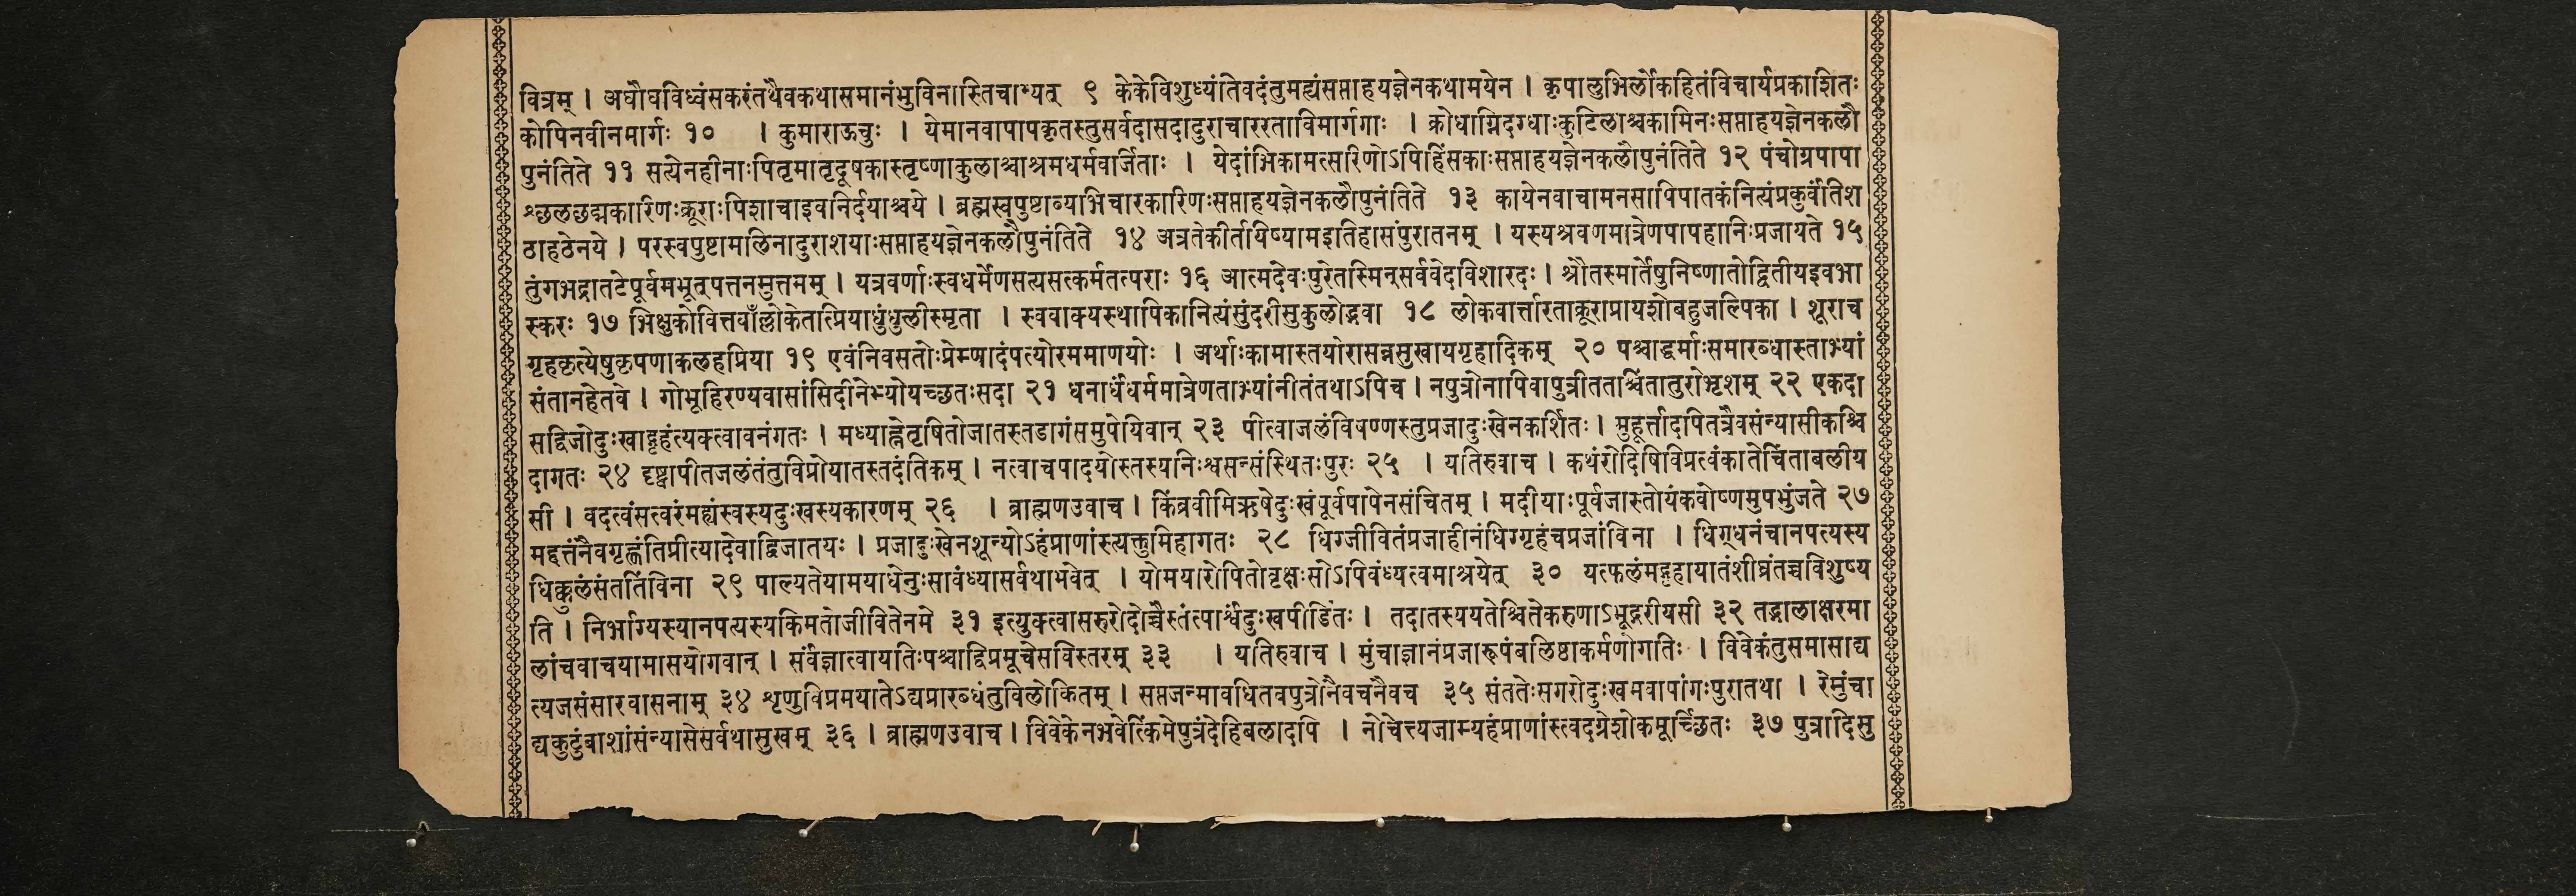 वित्रम् । अघौघविध्वंसकरंतथैवकथासमानंभुविनास्तिचान्यत् ९ केकेविशुध्यंतिवदंतुमह्यंसप्ताहयज्ञेनकथामयेन । कृपालुभिर्लोकहितंविचार्यप्रकाशितः
कोपिनवीनमार्गः १० । कुमाराऊचुः । येमानवापापकृतस्तुसर्वदासदादुराचाररताविमार्गगाः । क्रोधाग्निदग्धाःकुटिलाश्चकामिनःसप्ताहयज्ञेनकलौ
पुनंतिते ११ सत्येनहीनाःपितृमातृदूषकास्तृष्णाकुलाश्चाश्रमधर्मवर्जिताः । येदांभिकामत्सरिणोऽपिहिंसकाःसप्ताहयज्ञेनकलौपुनंतिते १२ पंचोग्रपापा
श्छलछद्मकारिणःक्रूराःपिशाचाइवनिर्दयाश्चये । ब्रह्मस्वपुष्टाव्यभिचारकारिणःसप्ताहयज्ञेनकलौपुनंतिते १३ कायेनवाचामनसापिपातकंनित्यंप्रकुर्वंतिश
ठाहठेनये । परस्वपुष्टामलिनादुराशयाःसप्ताहयज्ञेनकलौपुनंतिते १४ अत्रतेकीर्तयिष्यामइतिहासंपुरातनम् । यस्यश्रवणमात्रेणपापहानिःप्रजायते १५
तुंगभद्रातटेपूर्वमभूत्पत्तनमुत्तमम् । यत्रवर्णाःस्वधर्मेणसत्यसत्कर्मतत्पराः १६ आत्मदेवःपुरेतस्मिन्सर्ववेदविशारदः । श्रौतस्मार्तेषुनिष्णातोद्वितीयइवभा
स्करः १७ भिक्षुकोवित्तवाँल्लोकेतत्प्रियाधुंधुलीस्मृता । स्ववाक्यस्थापिकानित्यंसुंदरीसुकुलोद्भवा १८ लोकवार्त्तारताक्रूराप्रायशोबहुजल्पिका । शूराच
गृहकृत्येषुकृपणाकलहप्रिया १९ एवंनिवसतोःप्रेम्णादंपत्योरममाणयोः । अर्थाःकामास्तयोरासन्नसुखायगृहादिकम् २० पश्चाद्धर्माःसमारब्धास्ताभ्यां
संतानहेतवे । गोभूहिरण्यवासांसिदीनेभ्योयच्छतःसदा २१ धनार्धंधर्ममात्रेणताभ्यांनीतंतथाऽपिच । नपुत्रोनापिवापुत्रीततश्चिंतातुरोभृशम् २२ एकदा
सद्विजोदुःखाद्गृहंत्यक्त्वावनंगतः । मध्याह्नेतृषितोजातस्तडागंसमुपेयिवान् २३ पीत्वाजलंविषण्णस्तुप्रजादुःखेनकर्शितः । मुहूर्त्तादपितत्रैवसंन्यासीकश्चि
दागतः २४ दृष्ट्वापीतजलंतंतुविप्रोयातस्तदंतिकम् । नत्वाचपादयोस्तस्यनिःश्वसन्संस्थितःपुरः २५ । यतिरुवाच । कथंरोदिषिविप्रत्वंकातेचिंताबलीय
सी । वदत्वंसत्वरंमह्यंस्वस्यदुःखस्यकारणम् २६ । ब्राह्मणउवाच । किंब्रवीमिऋषेदुःखंपूर्वपापेनसंचितम् । मदीयाःपूर्वजास्तोयंकवोष्णमुपभुंजते २७
मद्दत्तंनैवगृह्णंतिप्रीत्यादेवाद्विजातयः । प्रजादुःखेनशून्योऽहंप्राणांस्त्यक्तुमिहागतः २८ धिग्जीवितंप्रजाहीनंधिग्गृहंचप्रजांविना । धिग्धनंचानपत्यस्य
धिक्कुलंसंततिंविना २९ पाल्यतेयामयाधेनुःसावंध्यासर्वथाभवेत् । योमयारोपितोवृक्षःसोऽपिवंध्यत्वमाश्रयेत् ३० यत्फलंमद्गृहायातंशीघ्रंतच्चविशुष्य
ति । निर्भाग्यस्यानपत्यस्यकिमतोजीवितेनमे ३१ इत्युक्त्वासरुरोदोच्चैस्तंत्पार्श्वंदुःखपीडितः । तदातस्ययतेश्चित्तेकरुणाऽभूद्गरीयसी ३२ तद्भालाक्षरमा
लांचवाचयामासयोगवान् । सर्वंज्ञात्वायतिःपश्चाद्विप्रमूचेसविस्तरम् ३३ । यतिरुवाच । मुंचाज्ञानंप्रजारूपंबलिष्ठाकर्मणोगतिः । विवेकंतुसमासाद्य
त्यजसंसारवासनाम् ३४ शृणुविप्रमयातेऽद्यप्रारब्धंतुविलोकितम् । सप्तजन्मावधितवपुत्रोनैवचनैवच ३५ संततेःसगरोदुःखमवापांगःपुरातथा । रेमुंचा
द्यकुटुंबाशांसंन्यासेसर्वथासुखम् ३६ । ब्राह्मणउवाच । विवेकेनभवेत्किंमेपुत्रंदेहिबलादपि । नोचेत्त्यजाम्यहंप्राणांस्त्वदग्रेशोकमूर्च्छितः ३७ पुत्रादिसु